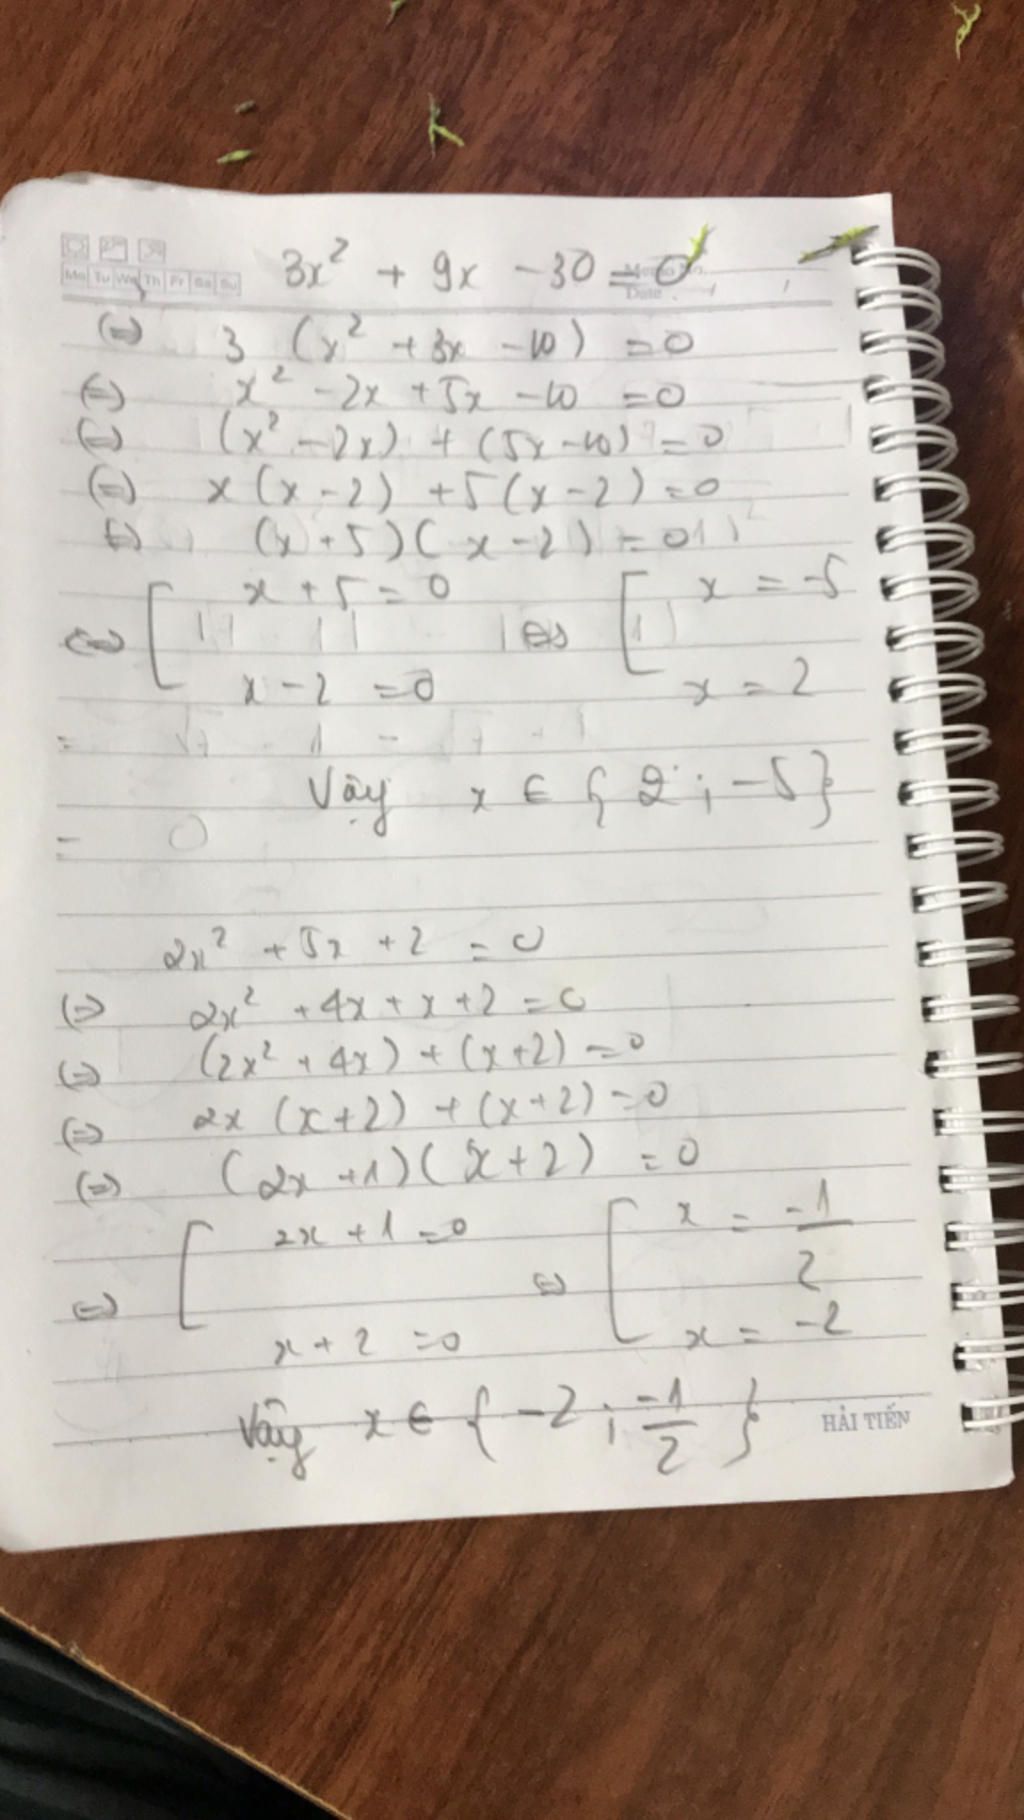 Mo Tu We Th Fr Sa Su
Memo No.
Date
3x² + 9x - 30 = 0
(=) 3 (x² + 3x - 10) = 0
(=) x² - 2x + 5x - 10 = 0
(=) (x² - 2x) + (5x - 10) = 0
(=) x (x - 2) + 5 (x - 2) = 0
(=) (x + 5)( x - 2) = 0
(=) [ x + 5 = 0 (=) [ x = -5
x - 2 = 0 x = 2
Vậy x ∈ { 2 ; -5 }
2x² + 5x + 2 = 0
(=) 2x² + 4x + x + 2 = 0
(=) (2x² + 4x) + (x + 2) = 0
(=) 2x (x + 2) + (x + 2) = 0
(=) (2x + 1)( x + 2) = 0
(=) [ 2x + 1 = 0 (=) [ x = -1/2
x + 2 = 0 x = -2
Vậy x ∈ { -2 ; -1/2 }
HẢI TIẾN